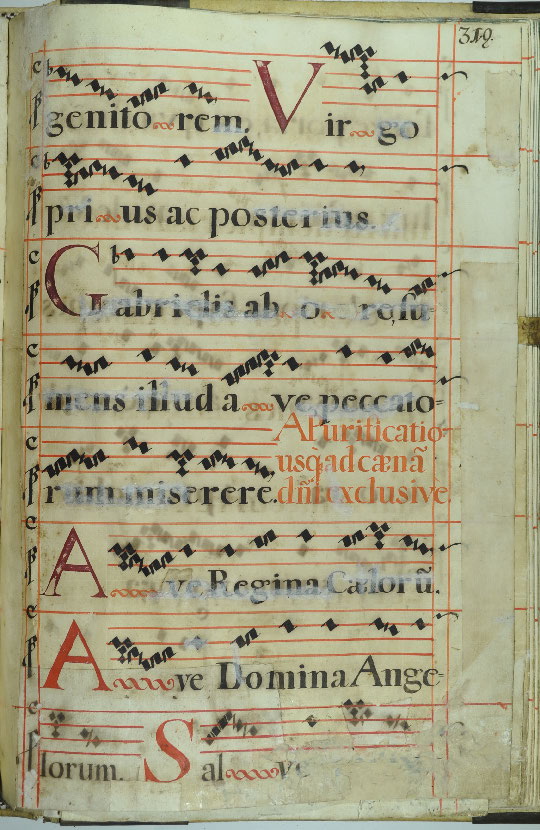 319.
genitorem. Virgo
prius ac posterius.
Gabrielis ab ore, su-
mens illud ave peccato-
rum miserere. A Purificatio-
usq̃ ad cænã
dñi exclusive
Ave Regina Cælorũ.
Ave Domina Ange-
lorum. Salve